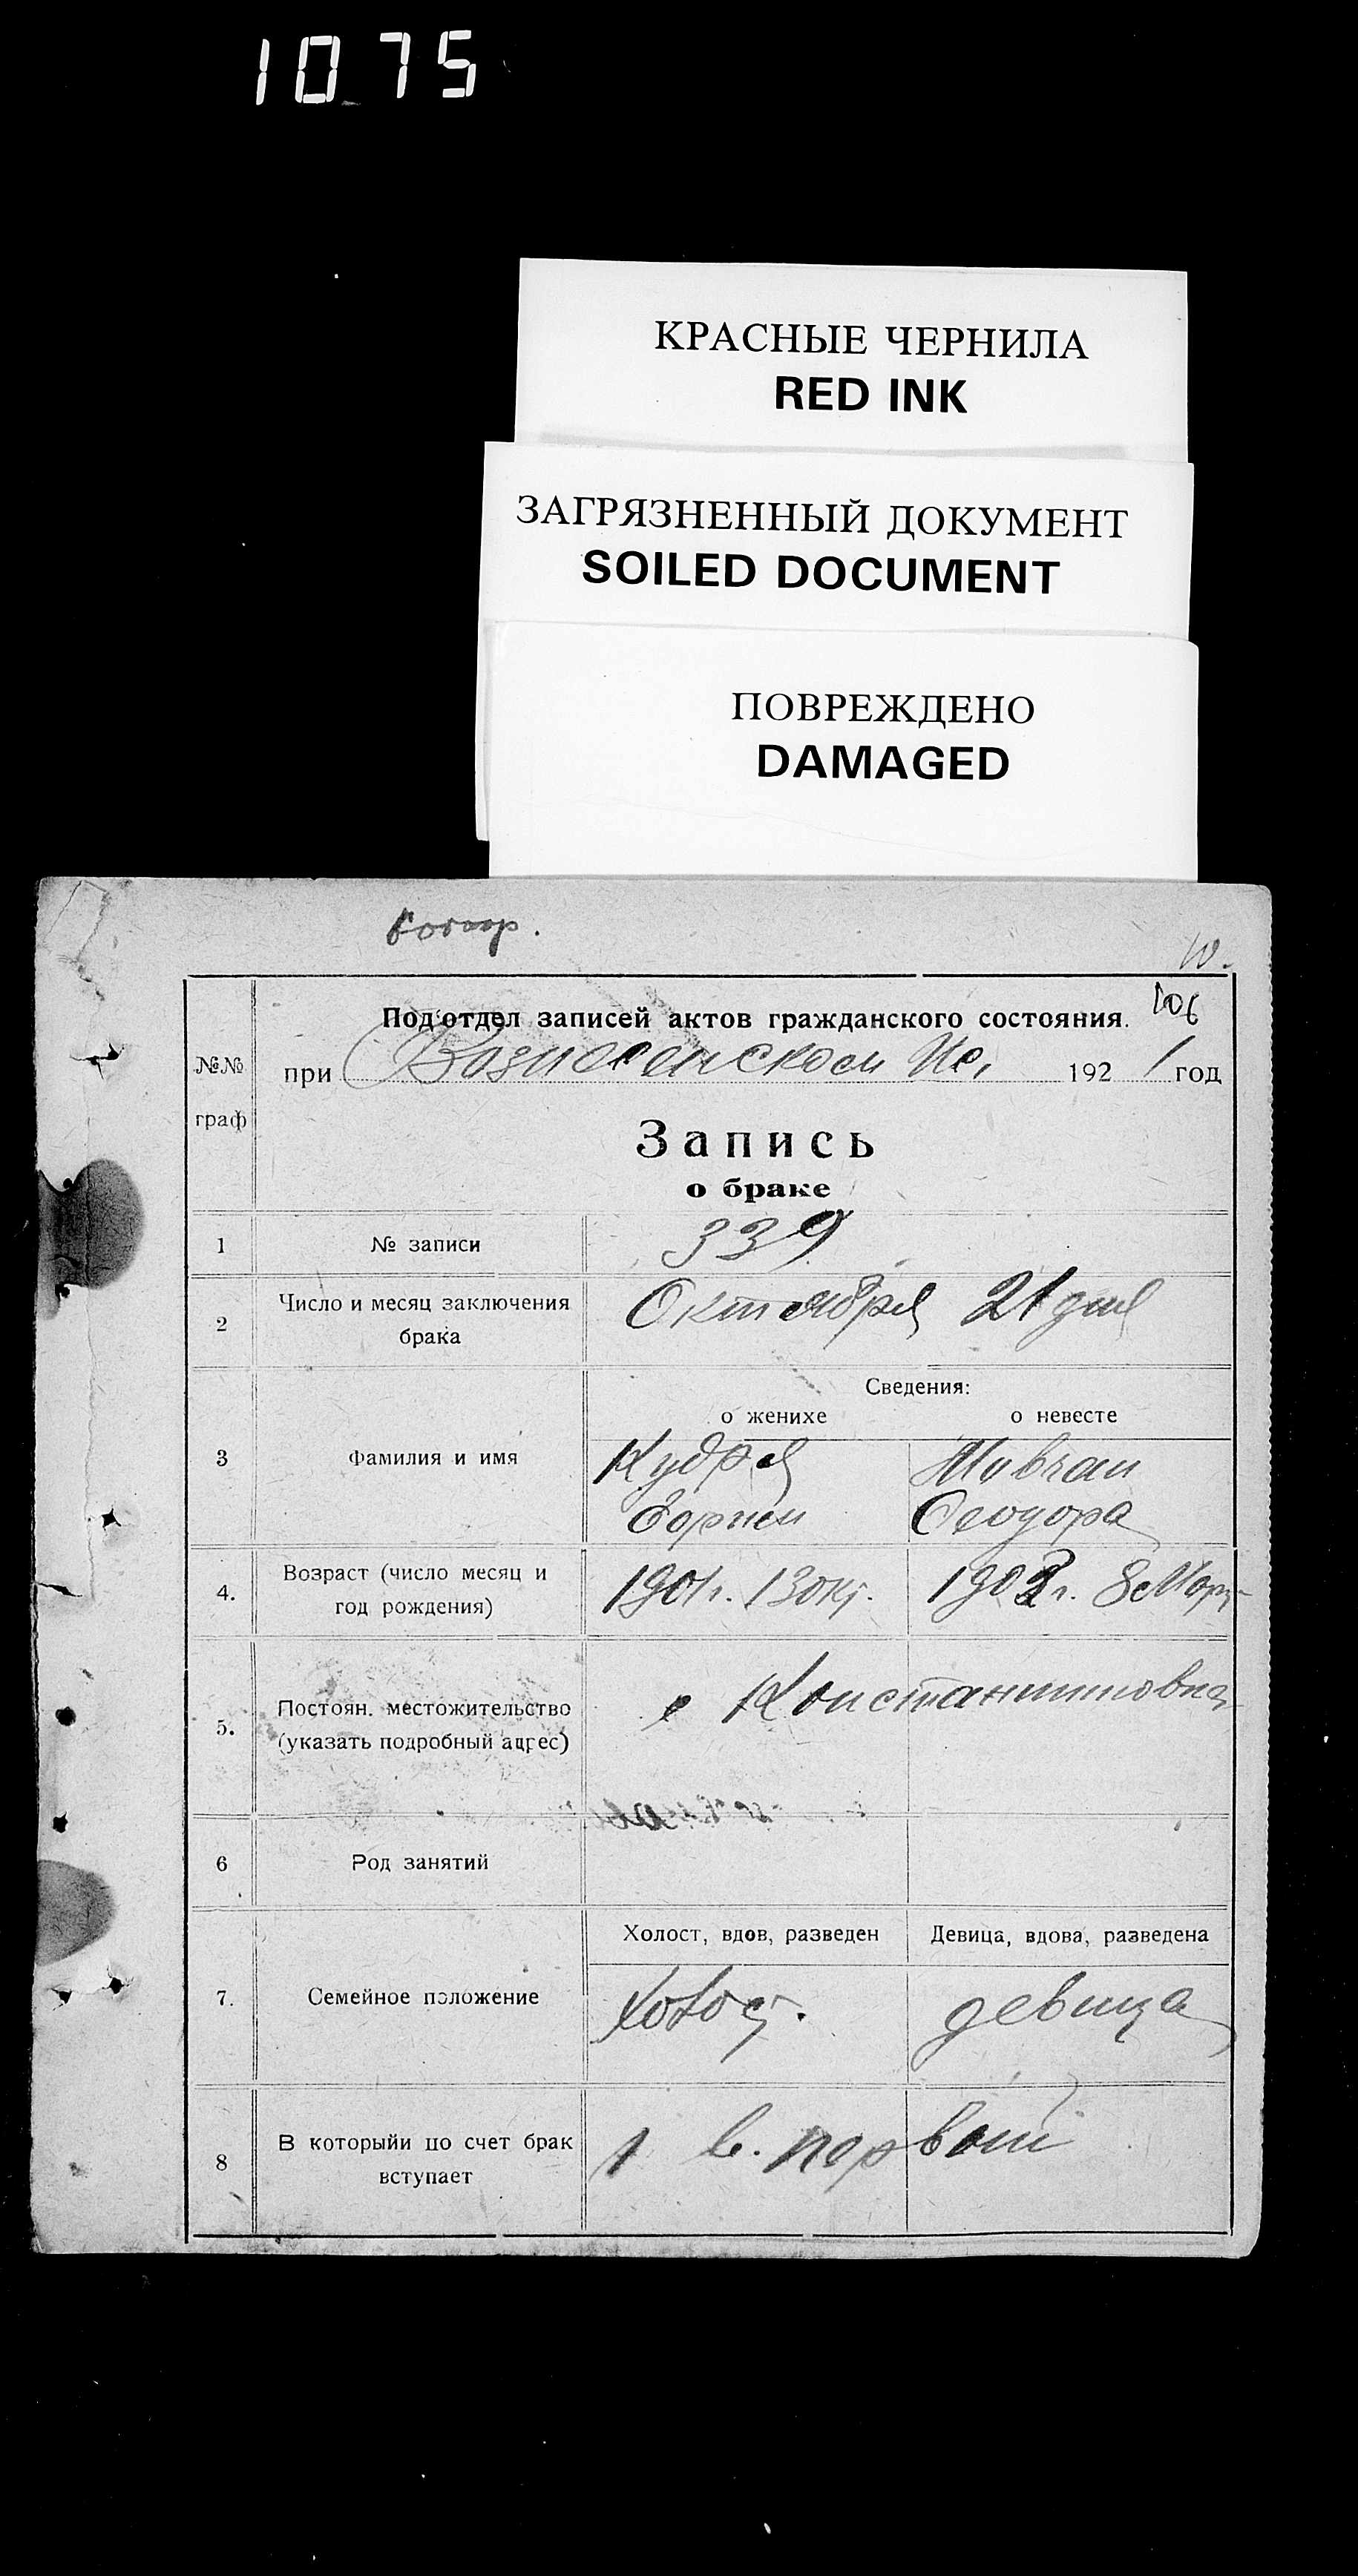 1075
КРАСНЫЕ ЧЕРНИЛА
RED INK
ЗАГРЯЗНЕННЫЙ ДОКУМЕНТ
SOILED DOCUMENT
ПОВРЕЖДЕНО
DAMAGED
10.
106
Под'отдел записей актов гражданского состояния.
№№ граф
при Вознесенском Ис, 1921 год
Запись
о браке
1 № записи 339
2 Число и месяц заключения брака Октября 21 дня
Сведения:
о женихе о невесте
3 Фамилия и имя Кудря Мовчан
Феодора
4. Возраст (число месяц и год рождения) 1901г. 13 окт. 1902г. 8 Март
5. Постоян. местожительство (указать подробный адрес) с Константиновка
6 Род занятий
Холост, вдов, разведен Девица, вдова, разведена
7. Семейное положение Холост. девица
8 В которыйи по счет брак вступает 1 в. первый